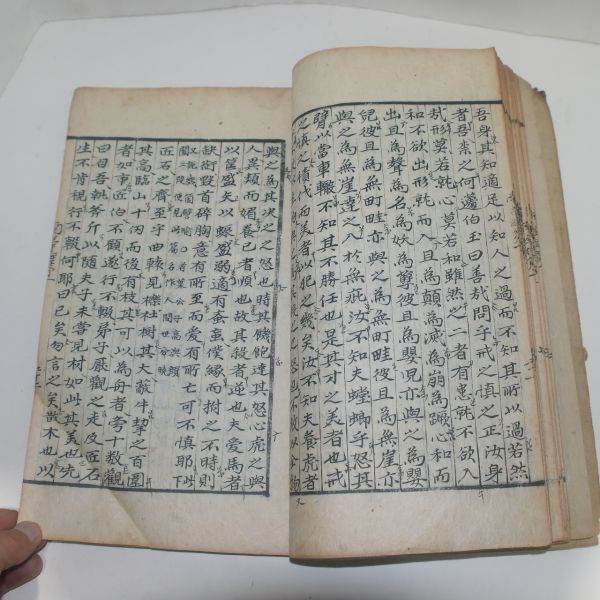 吾身其知適足以知人之過而不知其所以過若然
者吾奈之何蘧伯玉曰善哉問乎戒之慎之正汝身
哉形莫若就心莫若和雖然之二者有患就不欲入
和不欲出形就而入且為顛為滅為崩為蹶心和而
出且為聲為名為妖為孽彼且為嬰兒亦與之為嬰
兒彼且為無町畦亦與之為無町畦彼且為無崖亦
與之為無崖達之入於無疵汝不知夫螳螂乎怒其
臂以當車轍不知其不勝任也是其才之美者也戒
之慎之積伐而美者以犯之幾矣汝不知夫養虎者
與之為其決之之怒也時其饑飽達其怒心虎之與
人異類而媚養己者順也故其殺者逆也夫愛馬者
以筐盛矢以蜄盛溺適有蚉蝱僕緣而拊之不時則
缺銜毀首碎胸意有所至而愛有所亡可不慎耶下此
匠石之齊至乎曲轅見櫟社樹其大蔽牛絜之百圍
其高臨山十仞而後有枝其可以為舟者旁十數觀
者如市匠伯不顧遂行不輟弟子厭觀之走及匠石
曰自吾執斧斤以隨夫子未嘗見材如此其美也先
生不肯視行不輟何耶曰已矣勿言之矣散木也以